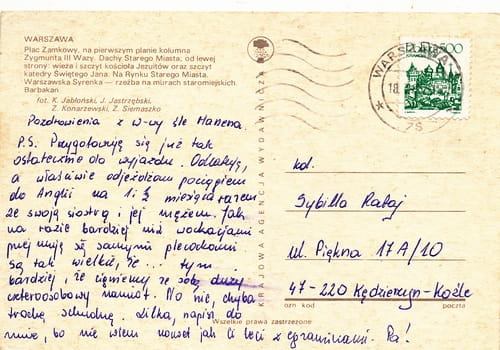 WARSZAWA
Plac Zamkowy, na pierwszym planie kolumna
Zygmunta III Wazy. Dachy Starego Miasta; od lewej
strony: wieża i szczyt kościoła Jezuitów oraz szczyt
katedry Świętego Jana. Na Rynku Starego Miasta.
Warszawska Syrenka — rzeźba na murach staromiejskich.
Barbakan
fot. K. Jabłoński, J. Jastrzębski,
Z. Konarzewski, Z. Siemaszko
Pozdrowienia z w-wy śle Marzena.
P.S. Przygotowuję się już tak
ostatecznie do wyjazdu. Odlatuję,
a właściwie odjeżdżam pociągiem
do Anglii na 1 i ½ miesiąca razem
ze swoją siostrą i jej mężem. Jak
na razie bardziej niż wakacjami
przejmuję się samymi plecakami
są tak wielkie, że ... tym
bardziej, że ciągniemy ze sobą duży
czteroosobowy namiot. No nic, chyba
trochę schudnę. Lilka, napisz do
mnie, bo nie wiem nawet jak Ci leci z egzaminami. Pa!
KRAJOWA AGENCJA WYDAWNICZA
Wszelkie prawa zastrzeżone
WARSZAWA
18
75
kol.
Sybilla Rataj
ul. Piękna 17A/10
47-220 Kędzierzyn-Koźle
ozn kod
poczta